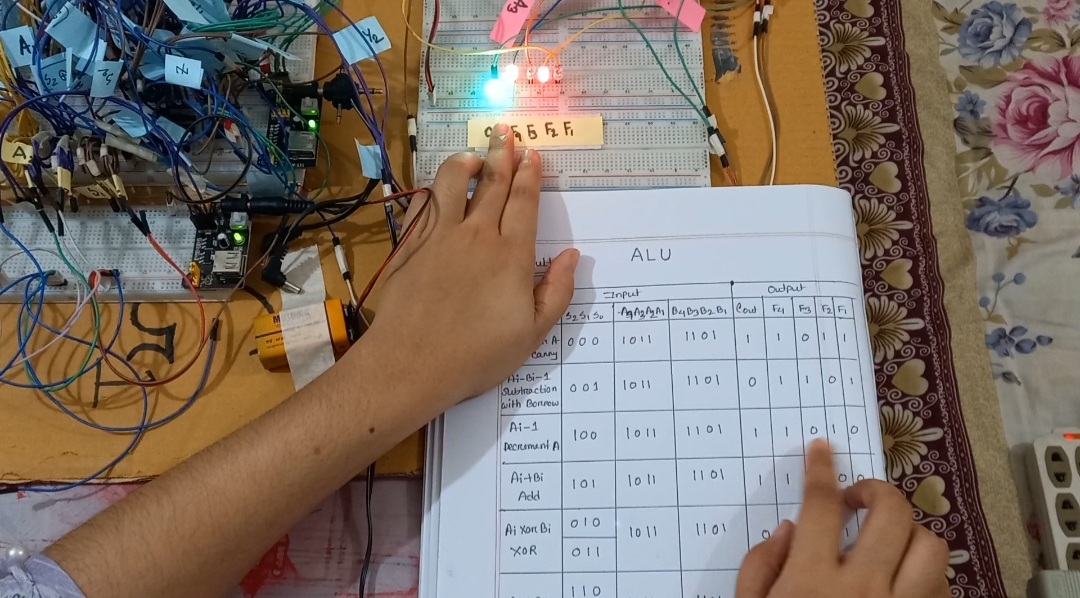 Y2
Z
A
F4 F3 F2 F1
ALU
Input
Output
S2 S1 S0
A4 A3 A2 A1
B4 B3 B2 B1
Cout
F4
F3
F2
F1
A
Carry
000
1011
1101
1
1
0
1
1
Ai-Bi-1
Subtraction
with Borrow
001
1011
1101
0
1
1
0
1
Ai-1
Decrement A
100
1011
1101
1
1
0
1
0
Ai+Bi
Add
101
1011
1101
1
1
0
0
Ai Xor Bi
XOR
010
011
1011
1101
0
1
110